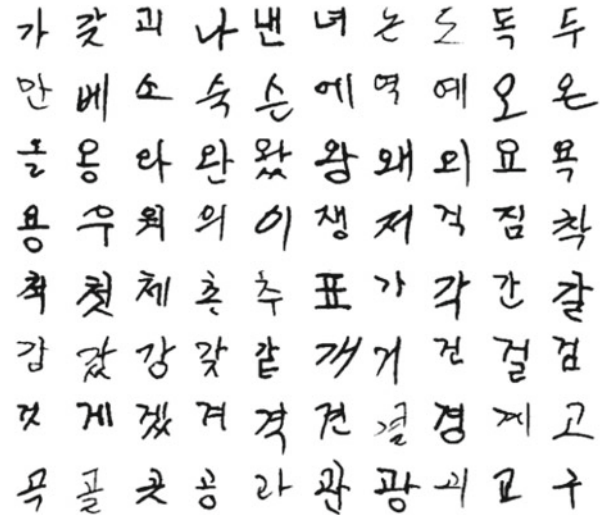 가 갖 괴 나 낸 녀 는 도 독 두
만 베 소 숙 슨 에 역 예 오 온
올 옹 와 완 왔 왕 왜 외 요 욕
용 우 웍 의 이 쟁 저 적 짐 착
척 첫 체 촌 추 표 가 각 간 갈
감 값 강 갖 같 개 거 건 걸 검
것 게 겠 겨 격 견 결 경 계 고
곡 골 곳 공 과 관 광 괴 교 구